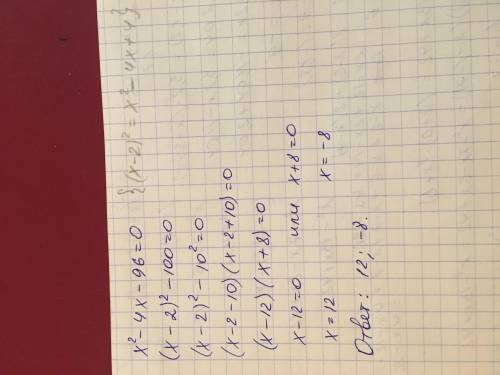 x² - 4x - 96 = 0 {(x-2)² = x² - 4x + 4}
(x - 2)² - 100 = 0
(x - 2)² - 10² = 0
(x - 2 - 10)(x - 2 + 10) = 0
(x - 12)(x + 8) = 0
x - 12 = 0 или x + 8 = 0
x = 12 x = -8
Ответ: 12; -8.